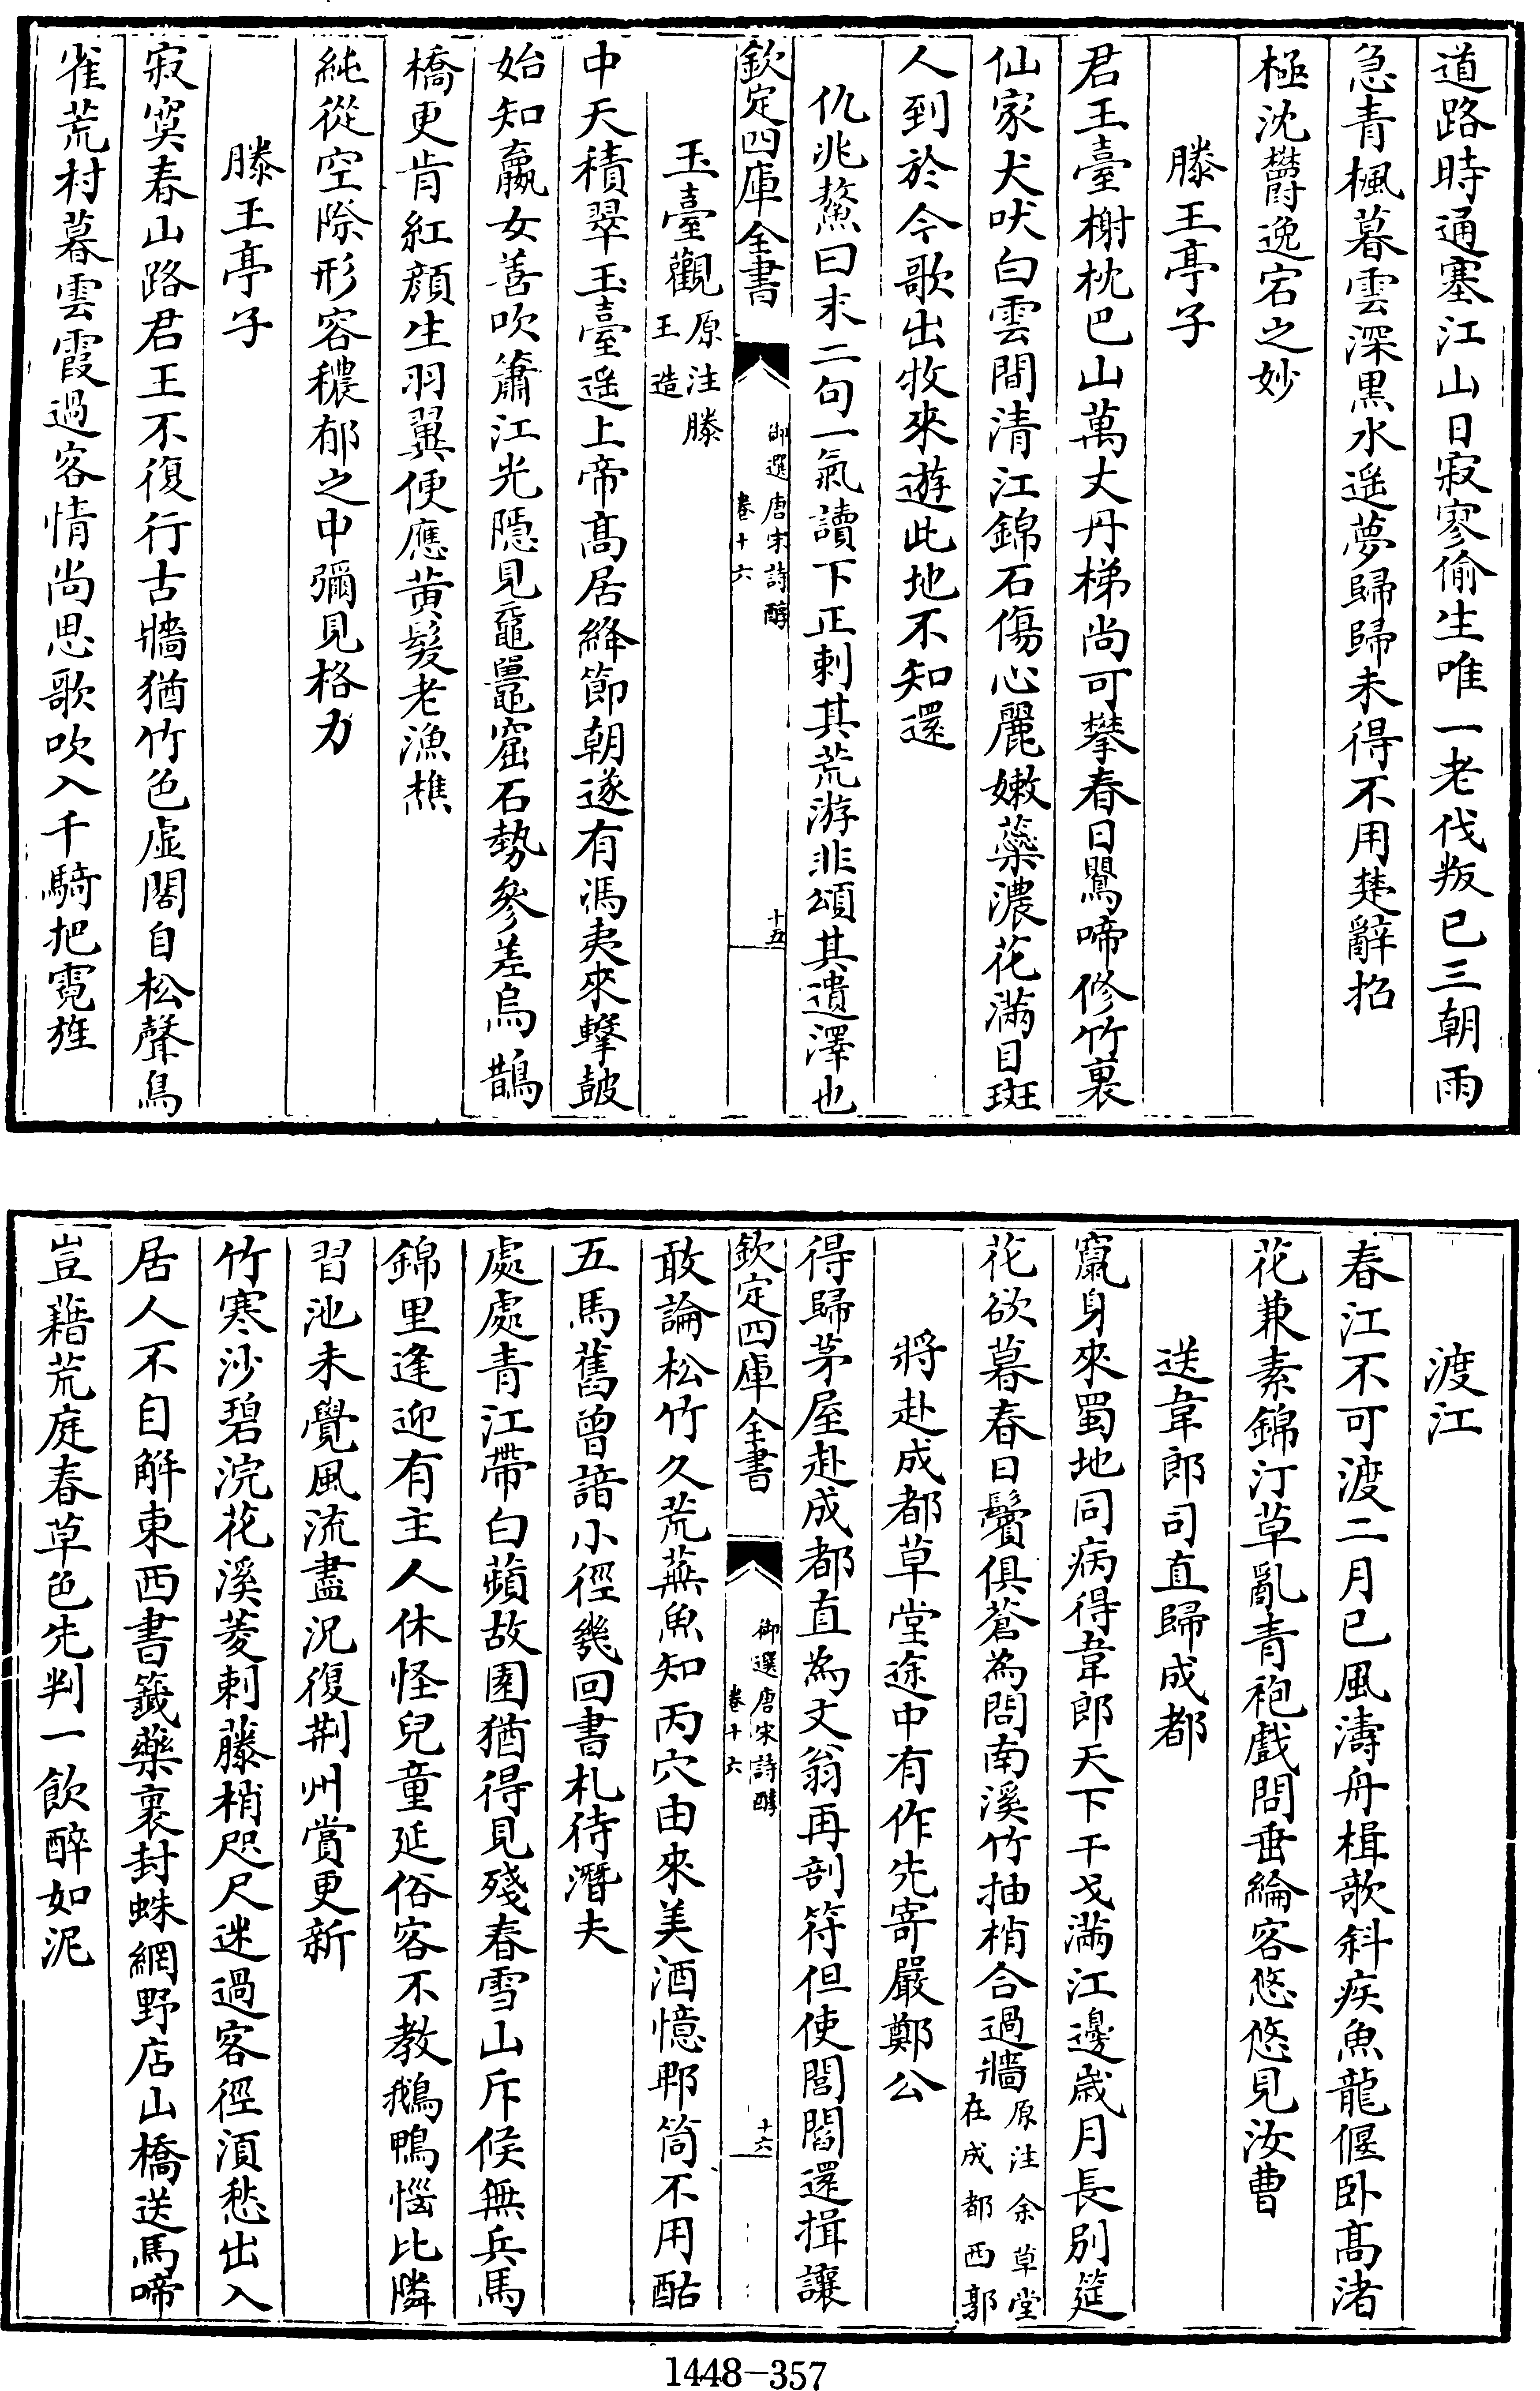 道路時通塞江山日寂寥偷生唯一老伐叛已三朝雨
急青楓暮雲深黒水遥夢歸歸未得不用楚辭招
極沈欝逸宕之妙
滕王亭子
君王臺榭枕巴山萬丈丹梯尚可攀春日鸎啼修竹裏
仙家犬吠白雲間清江錦石傷心麗嫩蘂濃花滿目斑
人到於今歌出牧來遊此地不知還
仇兆鰲曰末二句一氣讀下正刺其荒游非頌其遺澤也
欽定四庫全書
御選唐宋詩醇
卷十六
十五
玉臺觀原注滕
王造
中天積翠玉臺遥上帝高居絳節朝遂有馮夷來擊鼓
始知嬴女善吹簫江光隠見黿鼉窟石勢參差烏鵲
橋更肯紅顔生羽翼便應黄髮老漁樵
純從空際形容穠郁之中彌見格力
滕王亭子
寂寞春山路君王不復行古牆猶竹色虛閣自松聲鳥
雀荒村暮雲霞過客情尚思歌吹入千騎把霓旌
渡江
春江不可渡二月已風濤舟楫欹斜疾魚龍偃卧高渚
花兼素錦汀草亂青袍戲問垂綸客悠悠見汝曹
送韋郎司直歸成都
竄身來蜀地同病得韋郎天下干戈滿江邊歲月長別筵
花欲暮春日鬢俱蒼為問南溪竹抽梢合過牆原注余草堂
在成都西郭
將赴成都草堂途中有作先寄嚴鄭公
得歸茅屋赴成都直為文翁再剖符但使閭閻還揖讓
欽定四庫全書
御選唐宋詩醇
卷十六
十六
敢論松竹久荒蕪魚知丙穴由來美酒憶郫筒不用酤
五馬舊曾諳小徑幾回書札待潛夫
處處青江帶白蘋故園猶得見殘春雪山斥候無兵馬
錦里逢迎有主人休怪兒童延俗客不教鵝鴨惱比隣
習池未覺風流盡況復荆州賞更新
竹寒沙碧浣花溪菱刺藤梢咫尺迷過客徑湏愁出入
居人不自解東西書籤藥裹封蛛網野店山橋送馬啼
豈藉荒庭春草色先判一飲醉如泥
1448-357